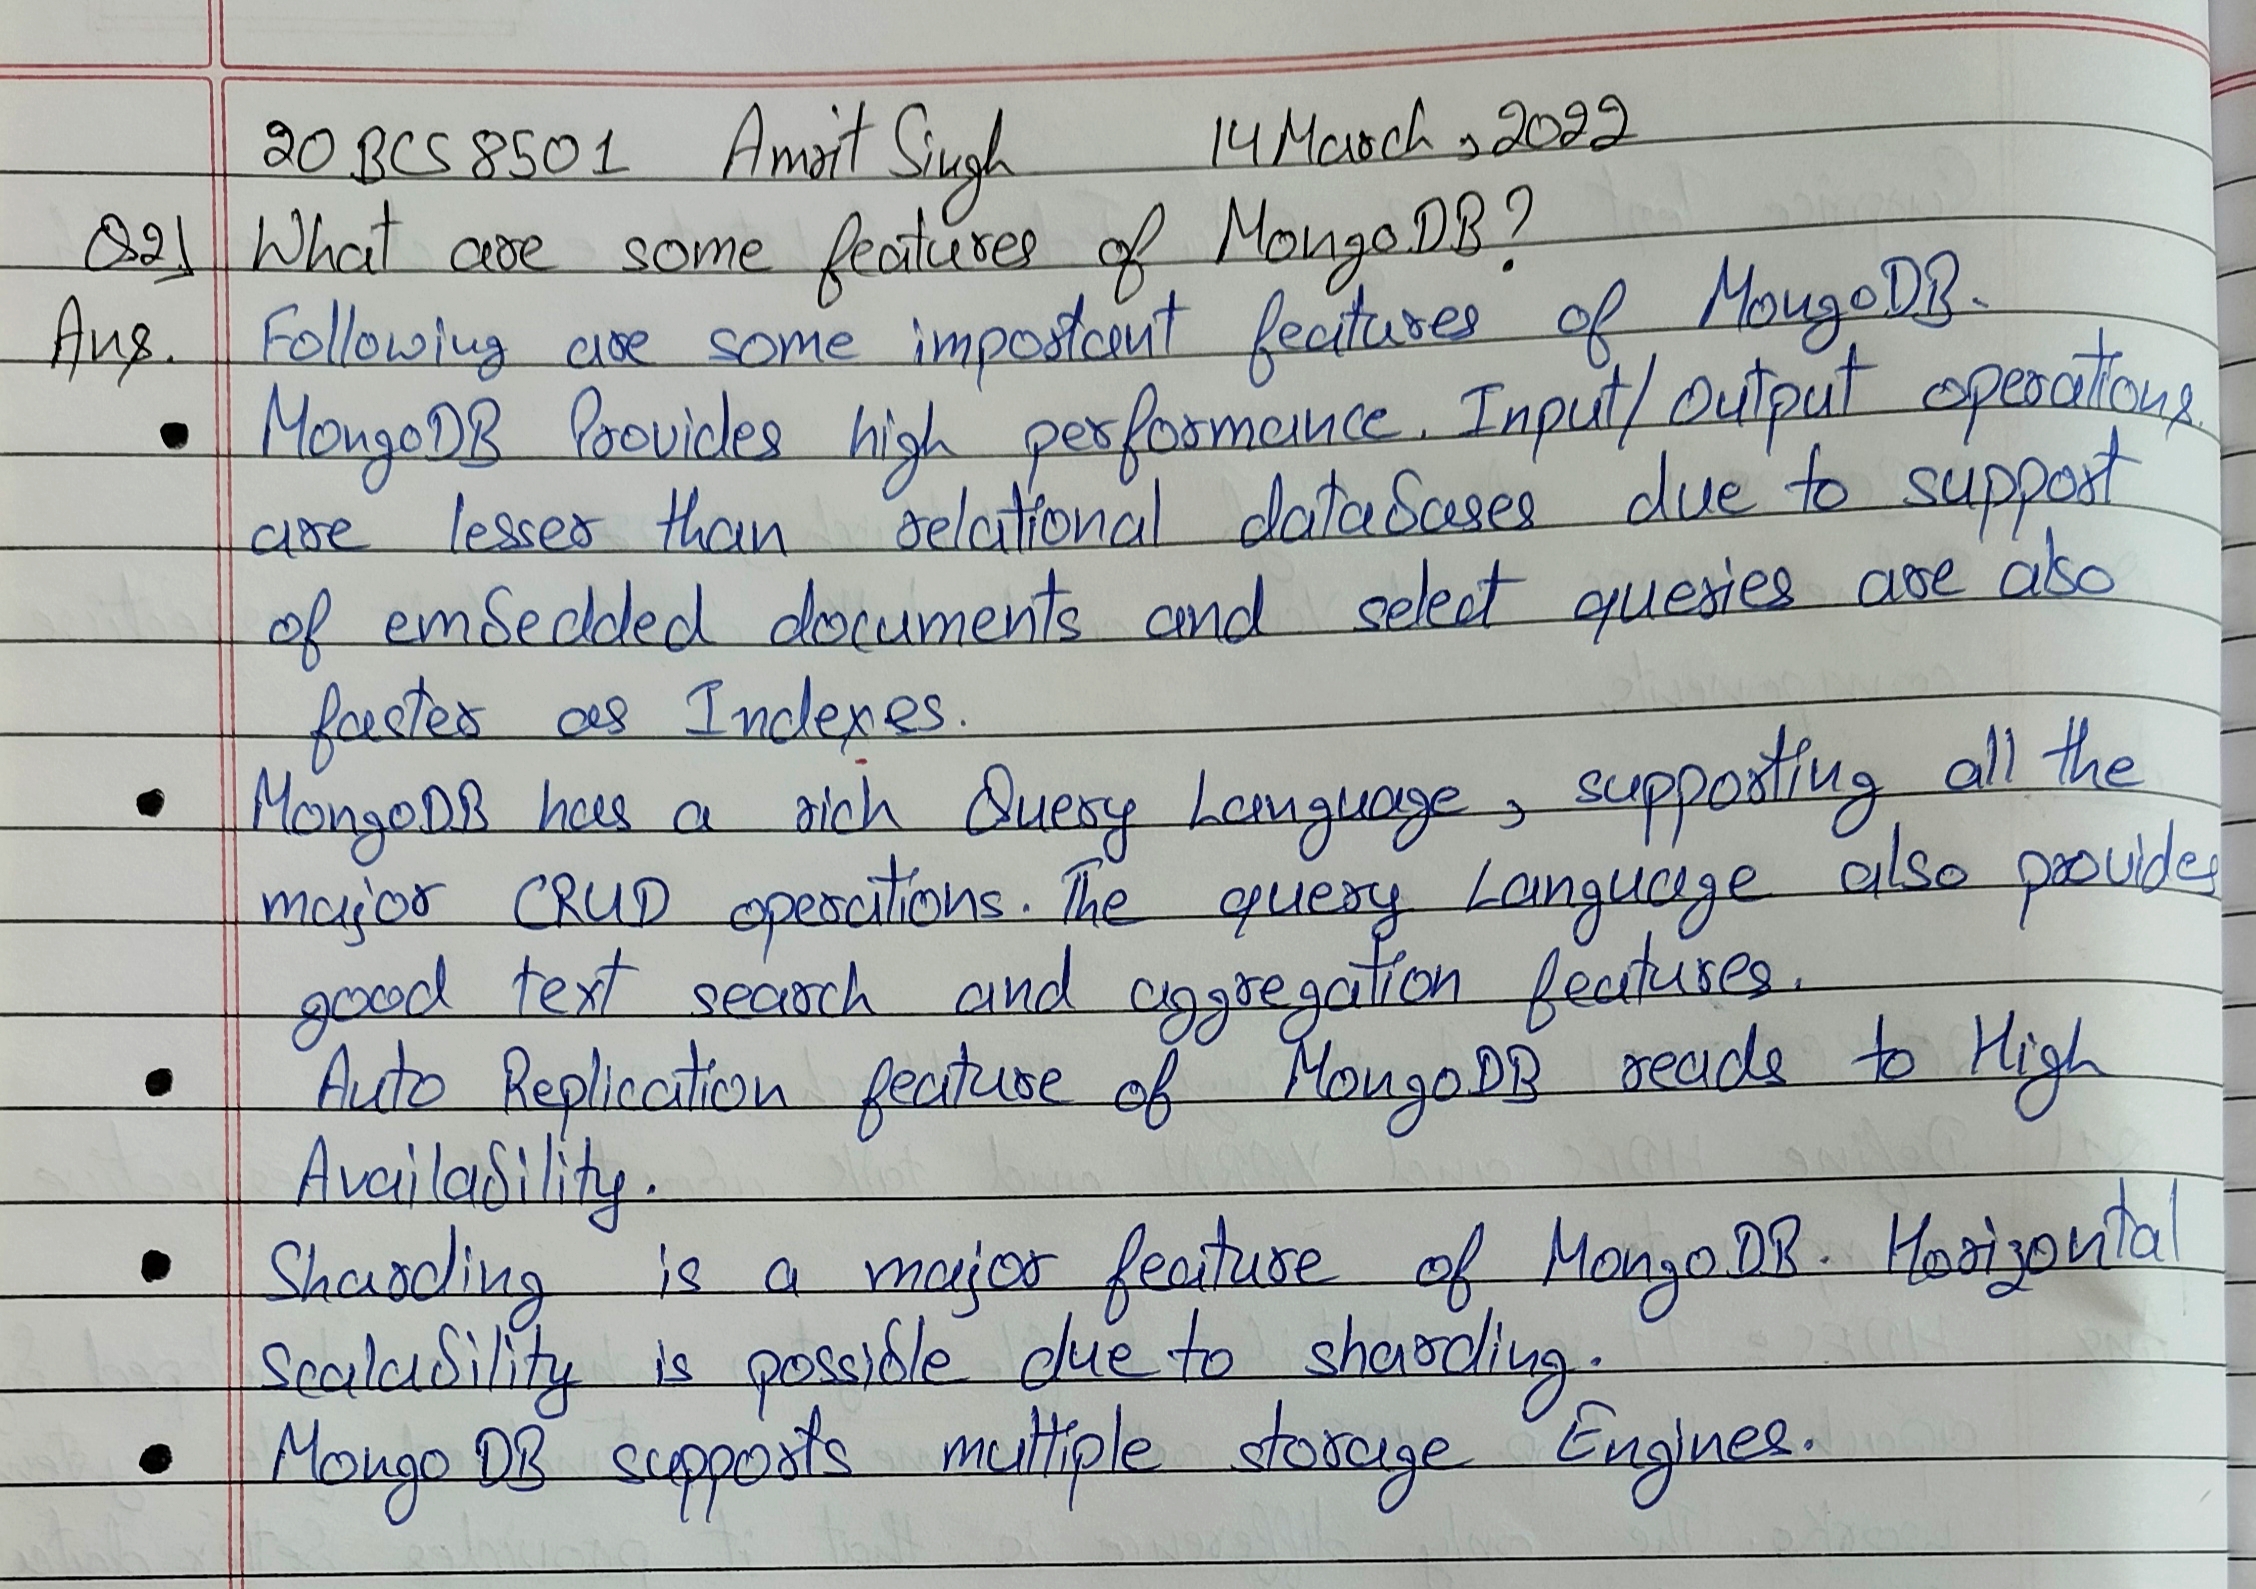 20BCS8501 Amrit Singh 14 March, 2022
Q2) What are some features of MongoDB?
Ans. Following are some important features of MongoDB.
• MongoDB Provides high performance. Input/Output operations
are lesser than relational databases due to support
of embedded documents and select queries are also
faster as Indexes.
• MongoDB has a rich Query Language, supporting all the
major CRUD operations. The query Language also provides
good text search and aggregation features.
• Auto Replication feature of MongoDB reads to High
Availability.
• Sharding is a major feature of MongoDB. Horizontal
Scalability is possible due to sharding.
• MongoDB supports multiple storage Engines.